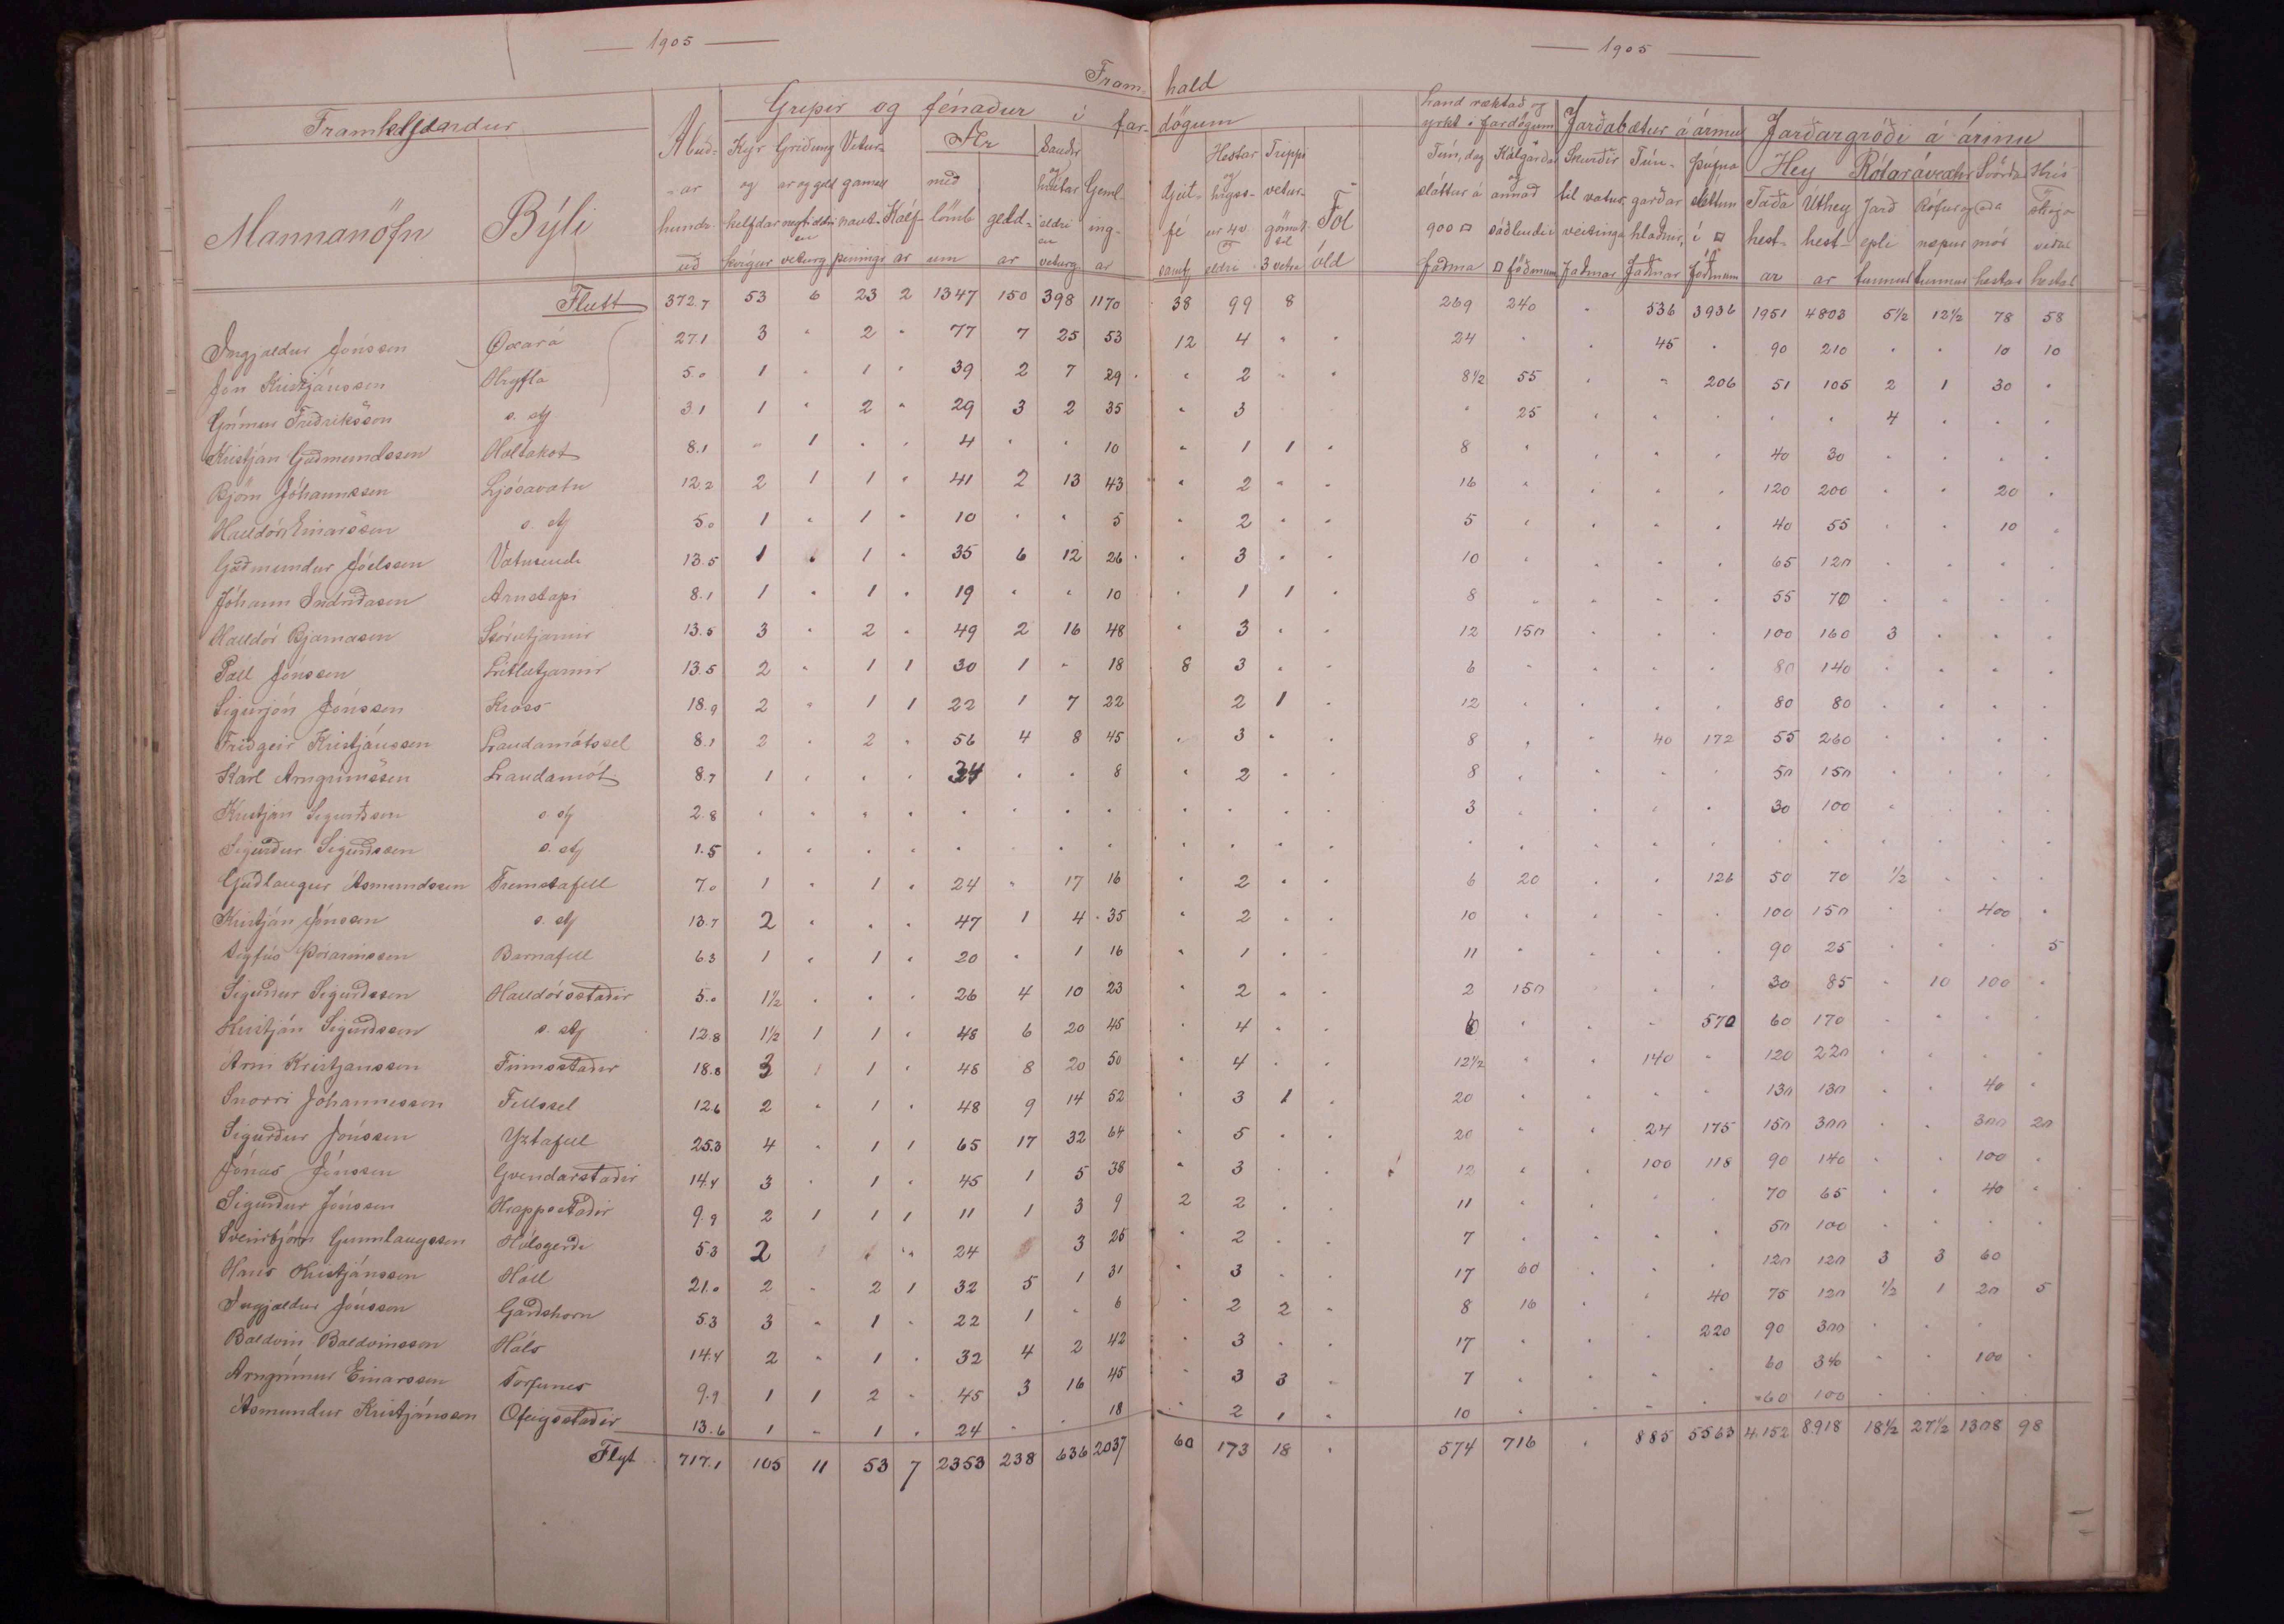 1905
1905
Fram- hald
Framteljendur
Gripir og fénaður í far- dögum
Land ræktað og yrkt í fardögum
Jarðabætur á árinu
Jarðargróði á árinu
Mannanöfn Býli
Flutt 372.7 53 6 23 2 1347 150 398 1170 38 99 8 269 240 " 536 3936 1951 4803 5½ 12½ 78 58
Ingjaldur Jónsson Öxará 27.1 3 " 2 " 77 7 25 53 12 4 " " 24 " " 45 " 90 210 " " 10 10
Jón Kristjánsson Hryfla 5.0 1 " 1 " 39 2 7 29 " 2 " " 8½ 55 " " 206 51 105 2 1 30 "
Grímur Friðriksson s. st. 3.1 1 " 2 " 29 3 2 35 " 3 " 25 " " " " " 4 " " "
Kristján Guðmundsson Holtakot 8.1 " 1 " " 4 " " 10 " 1 1 " 8 " " " " 40 30 " " " "
Björn Jóhannsson Ljósavatn 12.2 2 1 1 " 41 2 13 43 " 2 " " 16 " " " " 120 200 " " 20 "
Halldór Einarsson s. st. 5.0 1 " 1 " 10 " " 5 " 2 " " 5 " " " " 40 55 " " 10 "
Guðmundur Jóelsson Vatnsendi 13.5 1 " 1 " 35 6 12 26 " 3 " " 10 " " " " 65 120 " " " "
Jóhann Indriðason Arnstapi 8.1 1 " 1 " 19 " " 10 " 1 1 " 8 " " " " 55 70 " " " "
Halldór Bjarnason Stórutjarnir 13.5 3 " 2 " 49 2 16 48 " 3 " " 12 150 " " " 100 160 3 " " "
Páll Jónsson Litlutjarnir 13.5 2 " 1 1 30 1 " 18 8 3 " " 6 " " " " 80 140 " " " "
Sigurjón Jónsson Kross 18.9 2 " 1 1 22 1 7 22 2 1 " 12 " " " " 80 80 " " " "
Friðgeir Kristjánsson Landamótssel 8.1 2 " 2 " 56 4 8 45 " 3 " " 8 " " 40 172 55 260 " " " "
Karl Arngrímsson Landamót 8.7 1 " " " 34 " " 8 " 2 " " 8 " " " " 50 150 " " " "
Kristján Sigurðsson s. st. 2.8 " " " " " " " " " " " " 3 " " " " 30 100 " " " "
Sigurður Sigurðsson s. st. 1.5 " " " " " " " " " " " " " " " " " " " " " " "
Guðlaugur Ásmundsson Fremstafell 7.0 1 " 1 " 24 " 17 16 " 2 " " 6 20 " " 126 50 70 ½ " " "
Kristján Jónsson s. st. 13.7 2 " " " 47 1 4 35 " 2 " " 10 " " " " 100 150 " " 400 "
Sigfús Þórarinsson Barnafell 6.3 1 " 1 " 20 " 1 16 " 1 " " 11 " " " " 90 25 " " " 5
Sigurður Sigurðsson Halldórsstaðir 5.0 1½ " " " 26 4 10 23 " 2 " " 2 150 " " " 30 85 " 10 100 "
Kristján Sigurðsson s. st. 12.8 1½ 1 1 " 48 6 20 45 " 4 " " 6 " " " 570 60 170 " " " "
Árni Kristjánsson Finnsstaðir 18.8 3 1 1 " 46 8 20 50 " 4 " " 12½ " " 140 " 120 220 " " " "
Snorri Jóhannesson Fellssel 12.6 2 " 1 " 48 9 14 52 " 3 1 " 20 " " " " 130 130 " " 40 "
Sigurður Jónsson Yztafell 25.3 4 " 1 1 65 17 32 64 " 5 " " 20 " " 24 175 150 300 " " 300 20
Jónas Jónsson Gvendarstaðir 14.4 3 " 1 " 45 1 5 38 " 3 " " 12 " " 100 118 90 140 " " 100 "
Sigurður Jónsson Hrappsstaðir 9.9 2 1 1 1 11 1 3 9 2 2 " " 11 " " " " 70 65 " " 40 "
Sveinbjörn Gunnlaugsson Hólsgerði 5.3 2 " " " 24 3 25 " 2 " " 7 " " " " 50 100 " " " "
Hans Kristjánsson Hóll 21.0 2 " 2 1 32 5 1 31 " 3 " " 17 60 " " " 120 120 3 3 60
Ingjaldur Jónsson Garðshorn 5.3 3 " 1 " 22 1 " 6 " 2 2 " 8 16 " " 40 75 120 ½ 1 20 5
Baldvin Baldvinsson Háls 14.4 2 " 1 " 32 4 2 42 " 3 " " 17 " " " 220 90 300 " " "
Arngrímur Einarsson Torfunes 9.9 1 1 2 " 45 3 16 45 " 3 3 " 7 " " " " 60 340 " " 100 "
Ásmundur Kristjánsson Ófeigsstaðir 13.6 1 " 1 " 24 " " 18 " 2 1 " 10 " " " " 60 100 " " " "
Flyt 717.1 105 11 53 7 2353 238 636 2037 60 173 18 " 574 716 " 885 5563 4.152 8918 18½ 27½ 1308 98